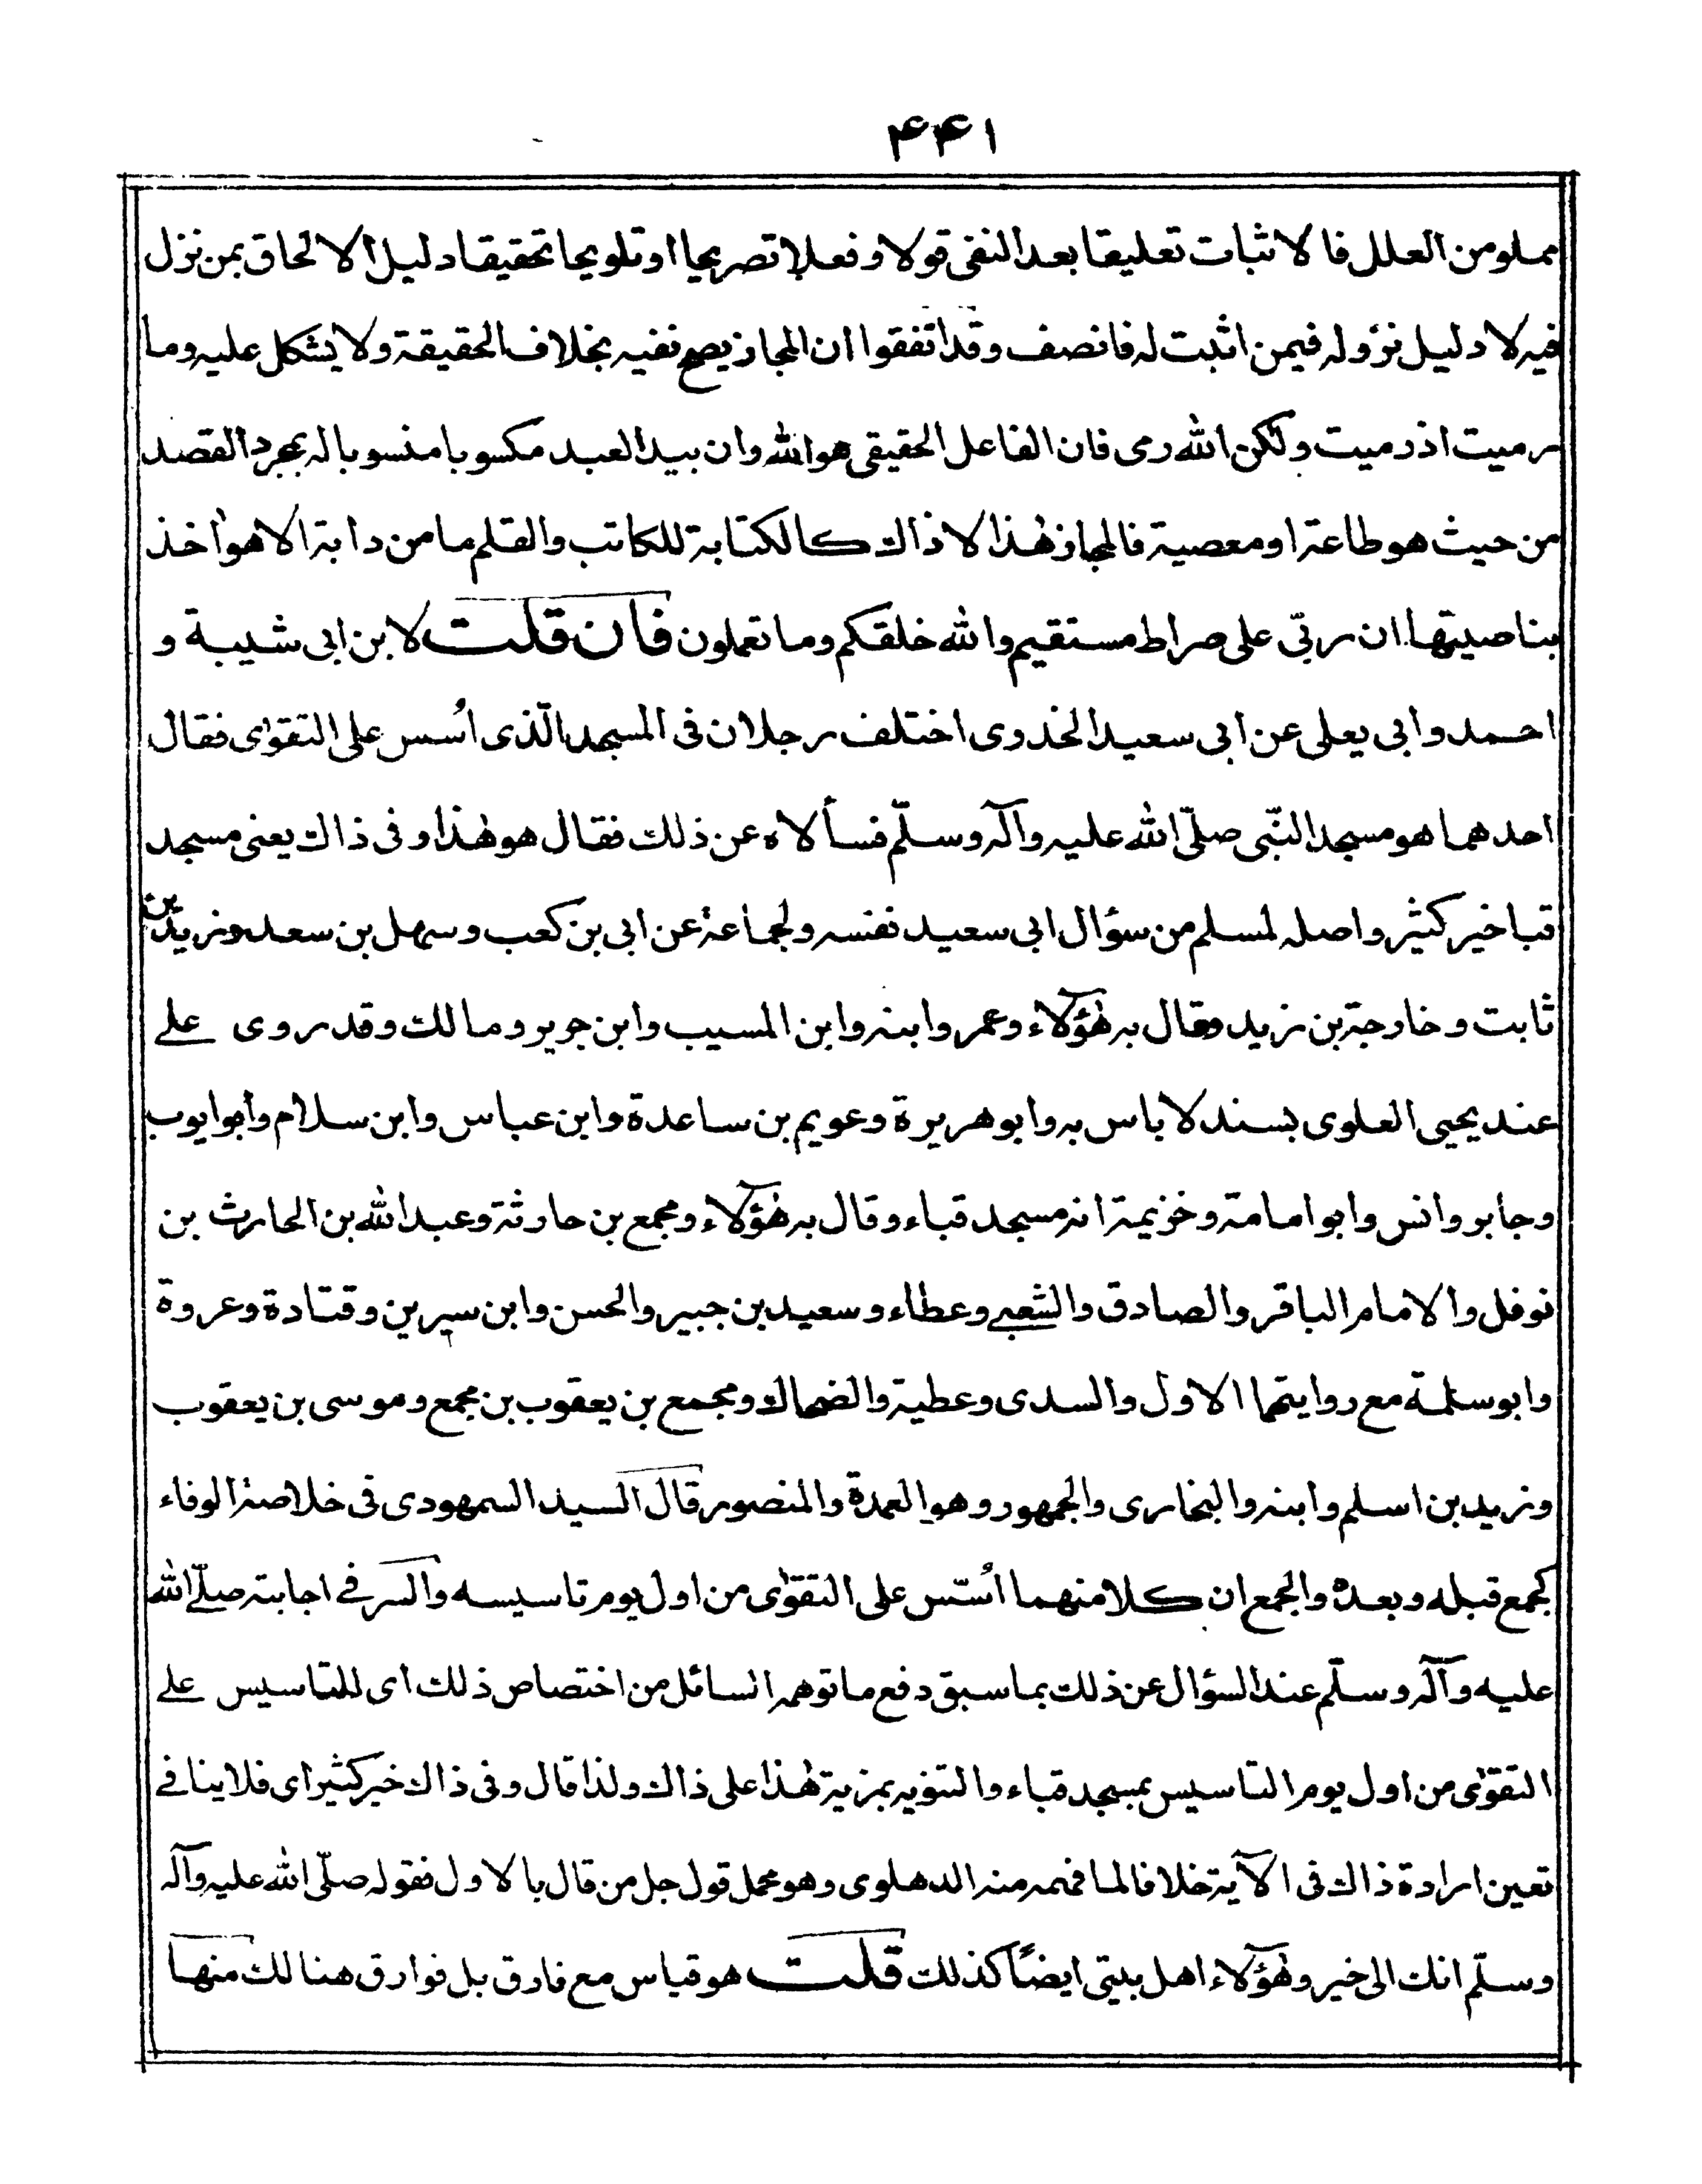 ۴۴۱
مملو من العلل فالاثبات تعليقا بعد النفى قولا وفعلا تصريحا او تلويحا تحقيقا دليل الالحاق بمن نزل
فيه لا دليل نزوله فيمن اثبت له فانصف وقد اتفقوا ان المجاز يصح نفيه بخلاف الحقيقة ولا يشكل عليه وما
رميت اذ رميت ولكن الله رمى فان الفاعل الحقيقى هو الله وان بيد العبد مكسوبا منسوبا له بمجرد القصد
من حيث هو طاعة او معصية فالمجاز هٰذا لا ذاك كالكتابة للكاتب والقلم ما من دابة الا هو اٰخذ
بناصيتها ان ربّى على صراط مستقيم والله خلقكم وما تعملون فان قلت لابن ابى شيبة و
احمد وابى يعلى عن ابى سعيد الخدوى اختلف رجلان فى المسجد الّذى اُسس على التقوٰى فقال
احدهما هو مسجد النّبى صلّى الله عليه وآله وسلّم فسألاه عن ذلك فقال هو هٰذا وفى ذاك يعنى مسجد
قبا خير كثير واصله لمسلم من سؤال ابى سعيد نفسه ولجماعة عن ابى بن كعب وسهل بن سعد وزيد بن
ثابت وخارجة بن زيد وقال به هٰؤلاء وعمر وابنه وابن المسيب وابن جرير ومالك وقد روى على
عند يحيى العلوى بسند لاباس به وابو هريرة وعويم بن ساعدة وابن عباس وابن سلام وابو ايوب
وجابر وانس وابو امامة وخزيمة انه مسجد قباء وقال به هٰؤلاء ومجمع بن حارثة وعبد الله بن الحارث بن
نوفل والامام الباقر والصادق والشعبى وعطاء وسعيد بن جبير والحسن وابن سيرين وقتادة وعروة
وابو سلمة مع روايتهما الاول والسدى وعطية والضحاك ومجمع بن يعقوب بن مجمع وموسى بن يعقوب
وزيد بن اسلم وابنه والبخارى والجمهور وهو العمدة والمنصور قال السيد السمهودى فى خلاصة الوفاء
كجمع قبله وبعده والجمع ان كلا منهما اُسّس على التقوٰى من اول يوم تاسيسه والسر فى اجابته صلّى الله
عليه وآله وسلّم عند السؤال عن ذلك بما سبق دفع ما توهمه السائل من اختصاص ذلك اى للتاسيس على
التقوٰى من اول يوم التاسيس بمسجد قباء والتنويه بمزية هٰذا على ذاك ولذا قال وفى ذاك خير كثير اى فلاينافى
تعين ارادة ذاك فى الآية خلافا لما فهمه منه الدهلوى وهو محمل قول جل من قال بالاول فقوله صلّى الله عليه وآله
وسلّم انك الى خير وهٰؤلاء اهل بيتى ايضًا كذلك قلت هو قياس مع فارق بل فوارق هنالك منها